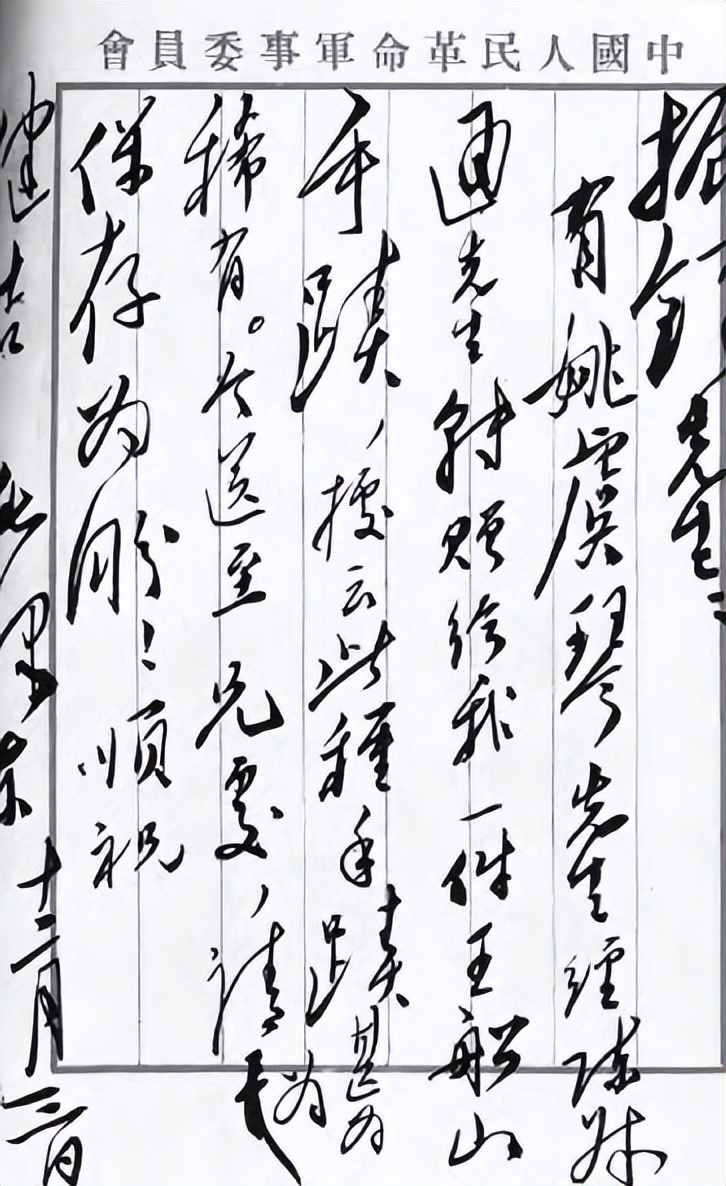 中國人民革命軍事委員會
振鐸先生：
有姚虞琴先生經陳叔
通先生轉贈給我一件王船山
手蹟，據云此種手蹟甚為
稀有。今送至兄處，請為
保存為盼！順祝
健吉 毛澤東
十二月三日